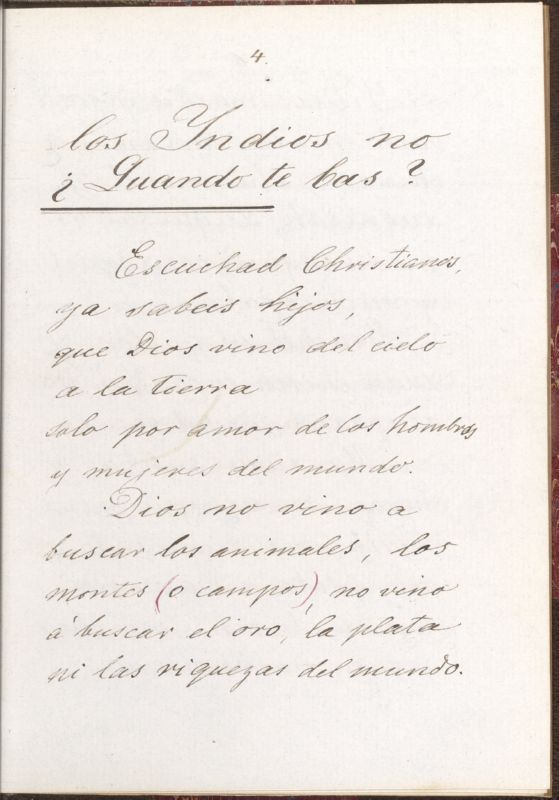 4.
los Yndios no
¿Quando te bas?
Escuchad Christianos,
ya sabeis hijos,
que Dios vino del cielo
a la tierra
solo por amor de los hombres
y mujeres del mundo.
Dios no vino a
buscar los animales, los
montes (o campos), no vino
á buscar el oro, la plata
ni las riquezas del mundo.